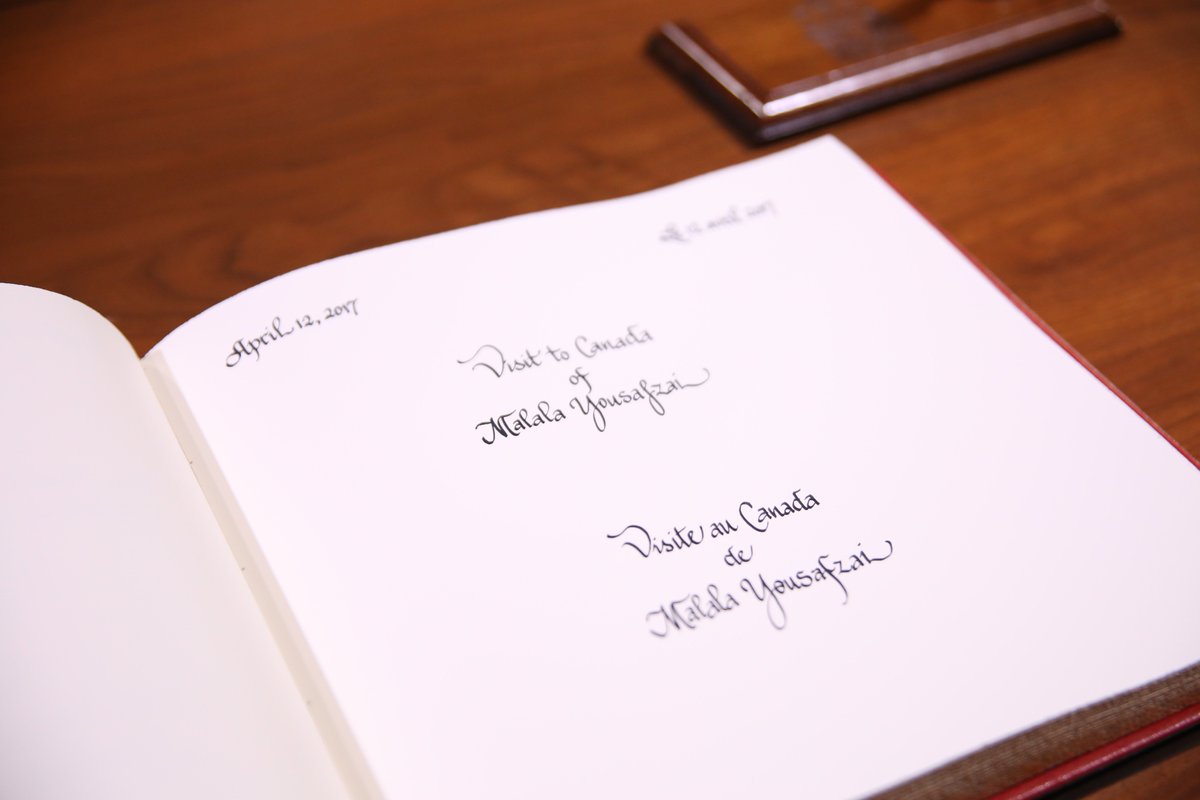 April 12, 2017
Le 12 avril 2017
Visit to Canada
of
Malala Yousafzai
Visite au Canada
de
Malala Yousafzai